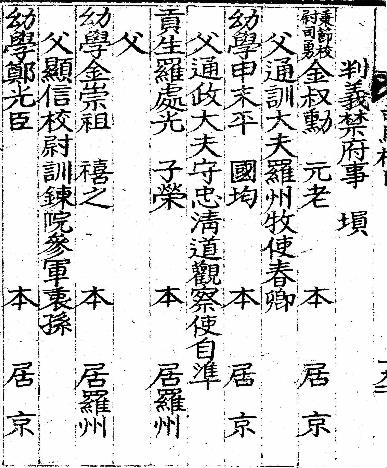 判義禁府事　塤
秉節校尉司勇金叔勳　元老　本　居京
父通訓大夫羅州牧使春卿
幼學申末平　國均　本　居京
父通政大夫守忠淸道觀察使自準
貢生羅處光　子榮　本　居羅州
父
幼學金崇祖　禧之　本　居羅州
父顯信校尉訓鍊院參軍秉孫
幼學鄭光臣　本　居京